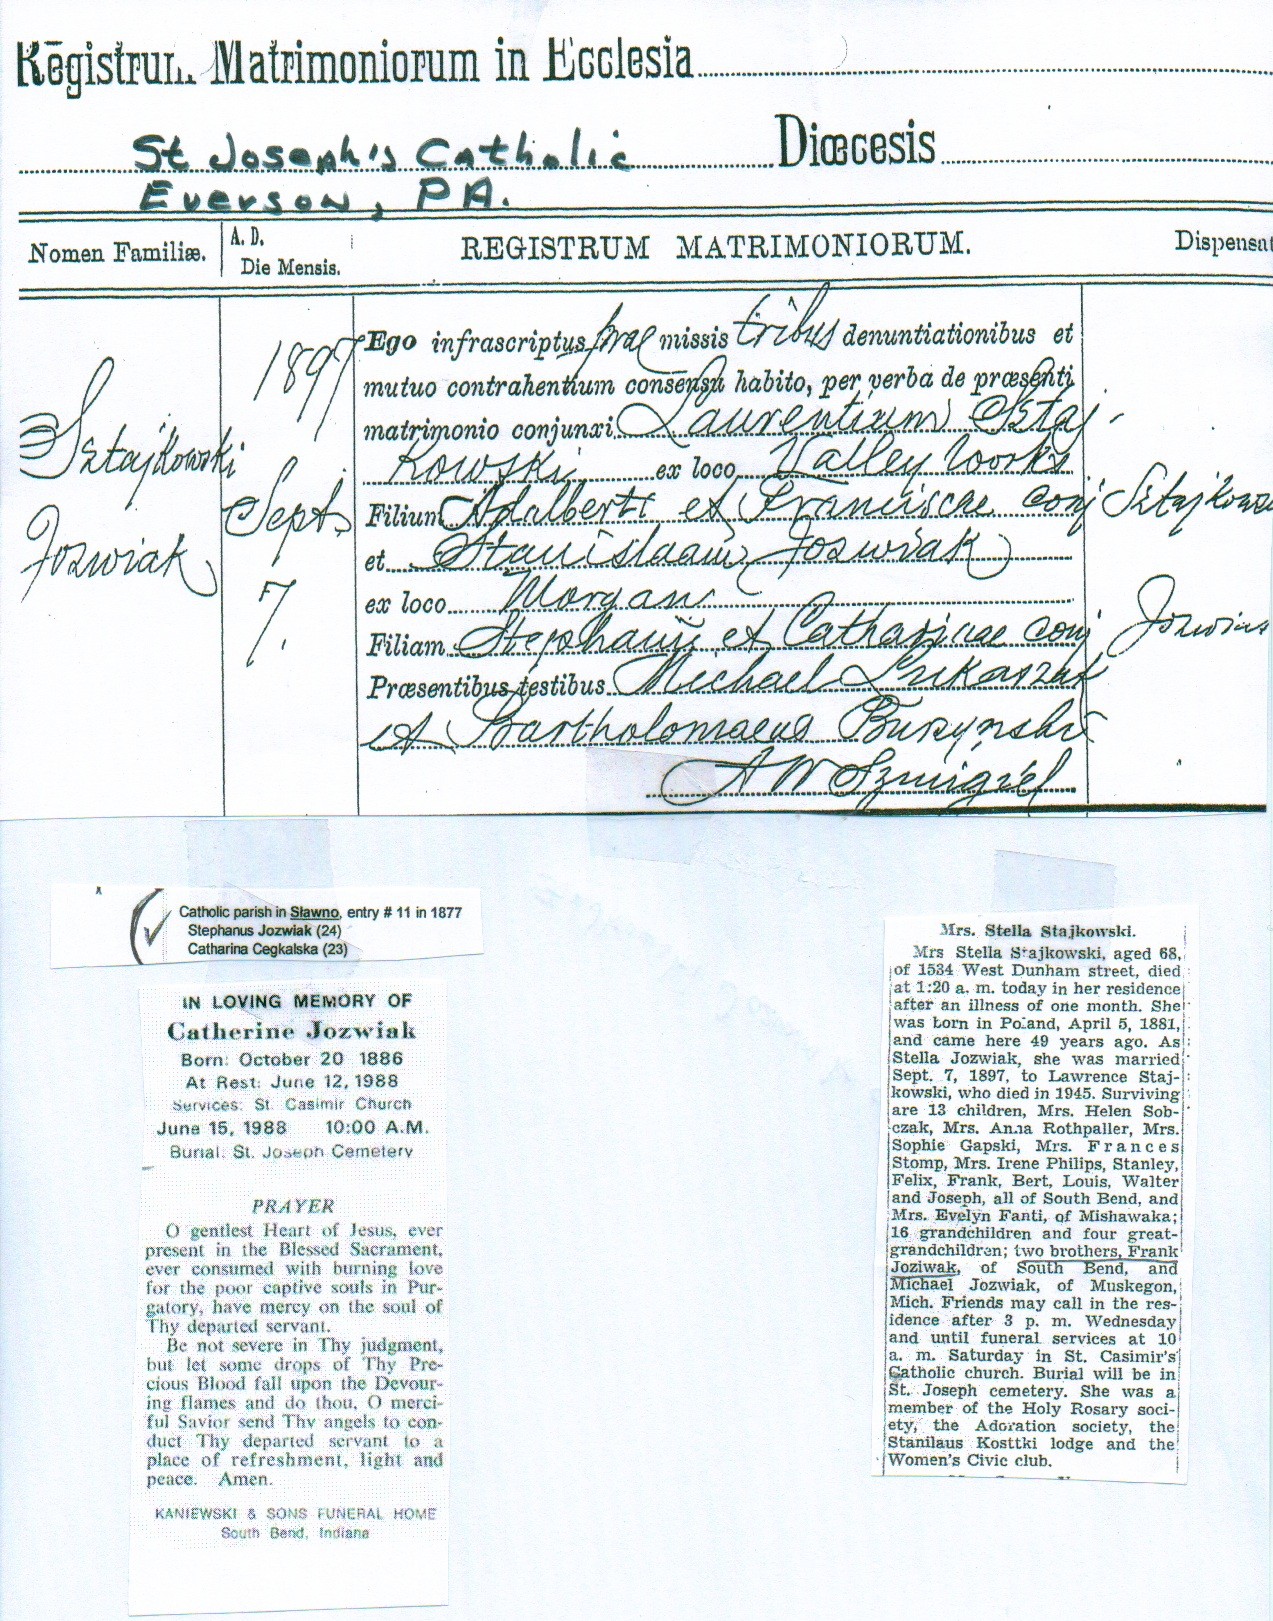 Registrum Matrimoniorum in Ecclesia
St Joseph's Catholic Diœcesis
Everson, PA.
Nomen Familiæ. A. D. Die Mensis. REGISTRUM MATRIMONIORUM. Dispensat
1897 Ego infrascriptus, præ missis tribus denuntiationibus et
mutuo contrahentium consensu habito, per verba de præsenti
matrimonio conjunxi Laurentium Sztaj-
Sztajkowski kowski ex loco Valley Works
Sept. Filium Adalberti et Franciscae conj Sztajkows
Jozwiak et Stanislaam Jozwiak
7. ex loco Morgan
Filiam Stephani et Catharinae conj Jozwiak
Præsentibus testibus Michael Lukaszak
et Bartholomaeus Buszynski
A W Szmigiel
Catholic parish in Slawno, entry # 11 in 1877
Stephanus Jozwiak (24)
Catharina Cegkalska (23)
IN LOVING MEMORY OF
Catherine Jozwiak
Born: October 20 1886
At Rest: June 12, 1988
Services: St. Casimir Church
June 15, 1988 10:00 A.M.
Burial: St. Joseph Cemetery
PRAYER
O gentlest Heart of Jesus, ever
present in the Blessed Sacrament,
ever consumed with burning love
for the poor captive souls in Pur-
gatory, have mercy on the soul of
Thy departed servant.
Be not severe in Thy judgment,
but let some drops of Thy Pre-
cious Blood fall upon the Devour-
ing flames and do thou, O merci-
ful Savior send Thy angels to con-
duct Thy departed servant to a
place of refreshment, light and
peace. Amen.
KANIEWSKI & SONS FUNERAL HOME
South Bend, Indiana
Mrs. Stella Stajkowski.
Mrs Stella Stajkowski, aged 68,
of 1534 West Dunham street, died
at 1:20 a. m. today in her residence
after an illness of one month. She
was born in Poland, April 5, 1881,
and came here 49 years ago. As
Stella Jozwiak, she was married
Sept. 7, 1897, to Lawrence Staj-
kowski, who died in 1945. Surviving
are 13 children, Mrs. Helen Sob-
czak, Mrs. Anna Rothpaller, Mrs.
Sophie Gapski, Mrs. Frances
Stomp, Mrs. Irene Philips, Stanley,
Felix, Frank, Bert, Louis, Walter
and Joseph, all of South Bend, and
Mrs. Evelyn Fanti, of Mishawaka;
16 grandchildren and four great-
grandchildren; two brothers, Frank
Joziwak, of South Bend, and
Michael Jozwiak, of Muskegon,
Mich. Friends may call in the res-
idence after 3 p. m. Wednesday
and until funeral services at 10
a. m. Saturday in St. Casimir's
Catholic church. Burial will be in
St. Joseph cemetery. She was a
member of the Holy Rosary soci-
ety, the Adoration society, the
Stanilaus Kosttki lodge and the
Women's Civic club.